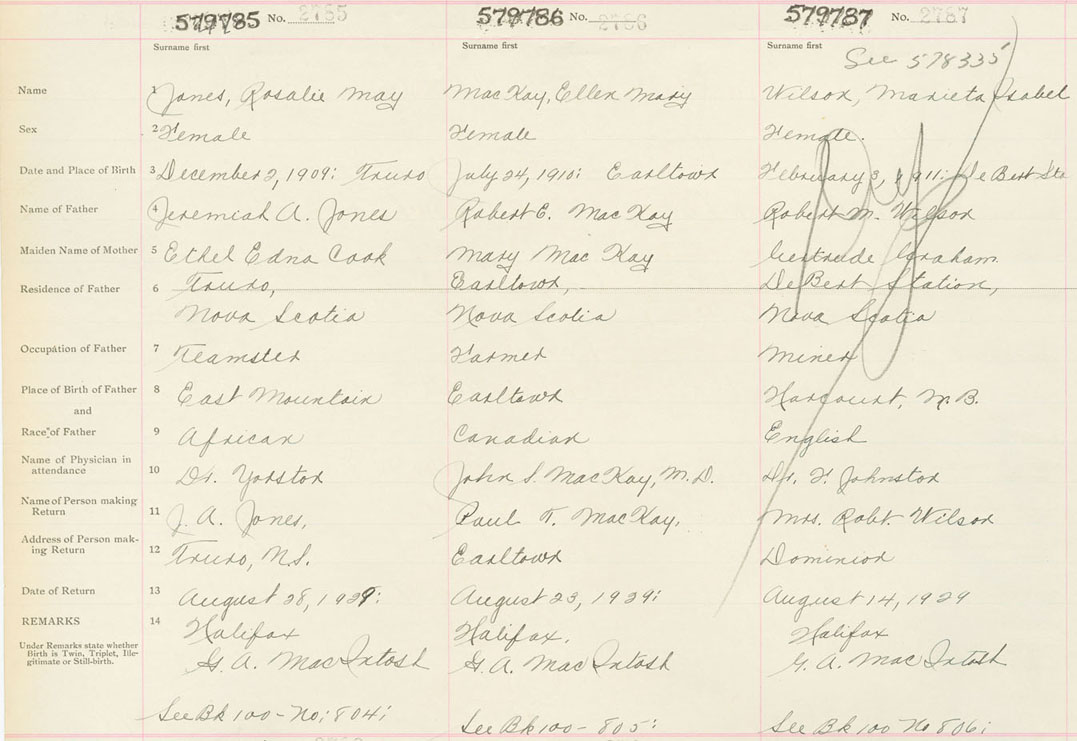 579785 No. 2785 579786 No. 2786 579787 No. 2787
Surname first Surname first Surname first See 578335
Name 1 Jones, Rosalie May MacKay, Ellen Mary Wilson, Marieta Isabel
Sex 2 Female Female Female.
Date and Place of Birth 3 December 2, 1909: Truro July 24, 1910: Earltown February 3, 1911: De Bert Sta
Name of Father 4 Jeremiah A. Jones Robert E. MacKay Robert M. Wilson
Maiden Name of Mother 5 Ethel Edna Cook Mary MacKay Gertrude Graham.
Residence of Father 6 Truro, Earltown, DeBert Station,
Nova Scotia Nova Scotia Nova Scotia
Occupation of Father 7 Teamster Farmer Miner
Place of Birth of Father 8 East Mountain Earltown Harcourt, N.B.
and
Race of Father 9 African Canadian English
Name of Physician in
attendance 10 Dr. Yorston John S. MacKay, M.D. Dr. F. Johnston
Name of Person making
Return 11 J. A. Jones, Paul T. MacKay, Mrs. Robt. Wilson
Address of Person mak-
ing Return 12 Truro, N.S. Earltown Dominion
Date of Return 13 August 28, 1929: August 23, 1929: August 14, 1929
REMARKS 14 Halifax Halifax. Halifax
Under Remarks state whether
Birth is Twin, Triplet, Ille-
gitimate or Still-birth.
G. A. MacIntosh G. A. MacIntosh G. A. MacIntosh
See Bk 100-No: 804: See Bk 100-805: See Bk 100 No 806: